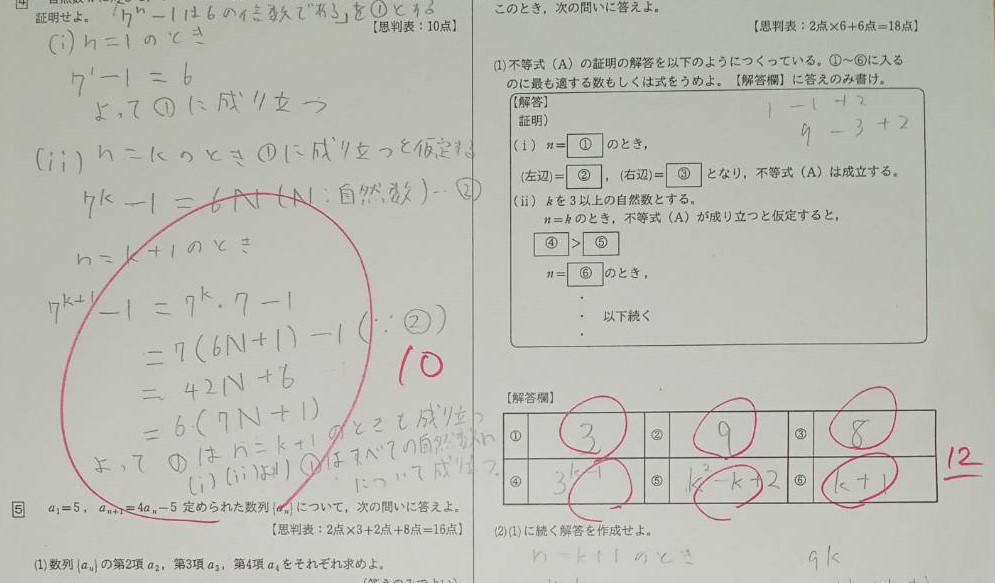 4
「7ⁿ−1は6の倍数である」を①とする
証明せよ。
【思判表：10点】
(i) n=1のとき
7¹−1 = 6
よって①に成り立つ
(ii) n=kのとき①に成り立つと仮定する
7ᵏ−1 = 6N (N：自然数)…②
n=k+1のとき
7ᵏ⁺¹−1 = 7ᵏ・7−1
= 7(6N+1)−1 (∵②)
= 42N+6
= 6・(7N+1)
10
よって①はn=k+1のときも成り立つ
(i)(ii)より①はすべての自然数n
について成り立つ。
5 a₁=5，aₙ₊₁=4aₙ−5 定められた数列{aₙ}について，次の問いに答えよ。
【思判表：2点×3+2点+8点=16点】
(1)数列{aₙ}の第2項a₂，第3項a₃，第4項a₄をそれぞれ求めよ。
このとき，次の問いに答えよ。
【思判表：2点×6+6点=18点】
(1)不等式（A）の証明の解答を以下のようにつくっている。①~⑥に入る
のに最も適する数もしくは式をうめよ。【解答欄】に答えのみ書け。
【解答】
1 −1 +2
9 −3 +2
証明）
(ⅰ) n= ① のとき，
(左辺)= ② ，(右辺)= ③ となり，不等式（A）は成立する。
(ⅱ) kを3以上の自然数とする。
n=kのとき，不等式（A）が成り立つと仮定すると，
④ > ⑤
n= ⑥ のとき，
・
・ 以下続く
・
【解答欄】
① 3 ② 9 ③ 8
④ 3ᵏ⁻¹ ⑤ k²−k+2 ⑥ k+1
12
(2)(1)に続く解答を作成せよ。
n=k+1のとき
9k